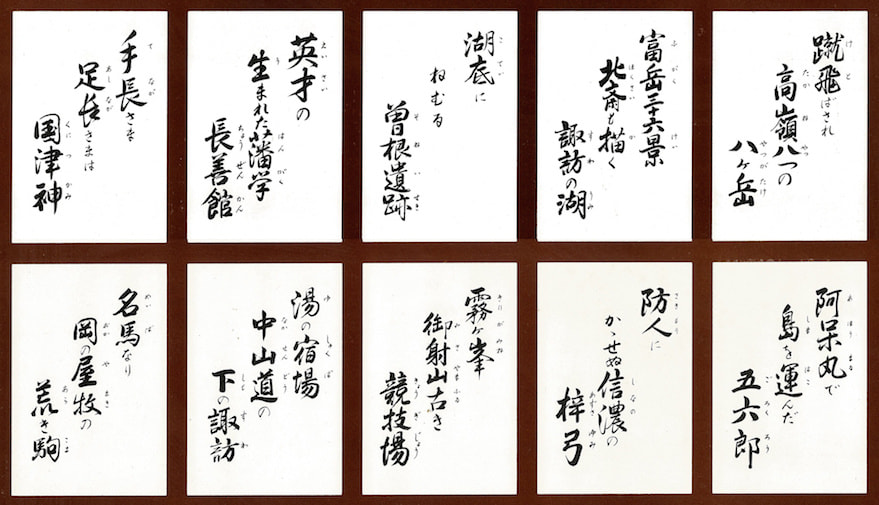 蹴飛ばされ
高嶺八つの
八ヶ岳
富岳三十六景
北斎も描く
諏訪の湖
湖底に
ねむる
曽根遺跡
英才の
生まれた藩学
長善館
手長さま
足長さまは
国津神
阿呆丸で
島を運んだ
五六郎
防人に
かゝせぬ信濃の
梓弓
霧ヶ峯
御射山古き
競技場
湯の宿場
中山道の
下の諏訪
名馬なり
岡の屋牧の
荒き駒